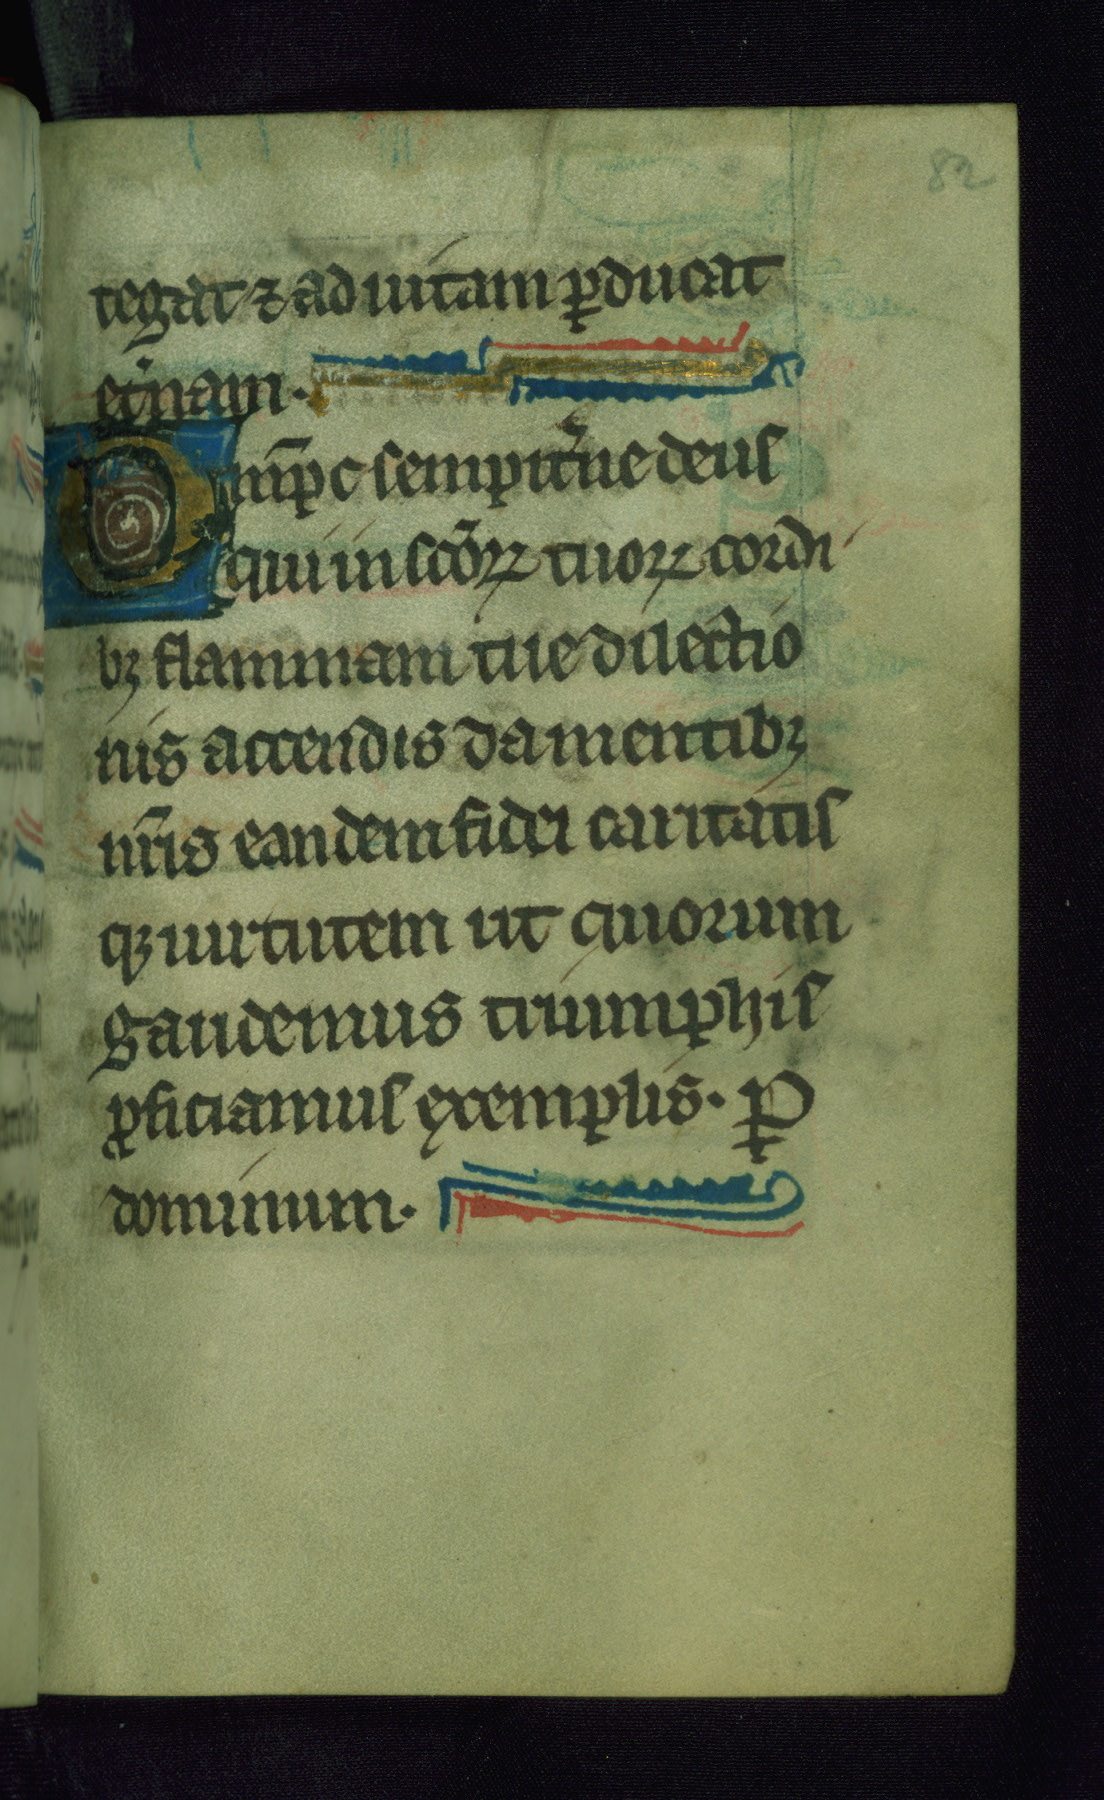 82
tegat ⁊ ad uitam ꝑducat
et̾nam.
Omp̄c sempit̾ne deus
qui in sc̄oꝝ tuoꝝ cordi
bꝫ flammam tue dilectio
nis accendis da mentibꝫ
nr̄is eandem fidei caritatis
qꝫ uirtutem ut quorum
gaudemus triumphis
ꝓficiamus exemplis. Ꝑ
dominum.